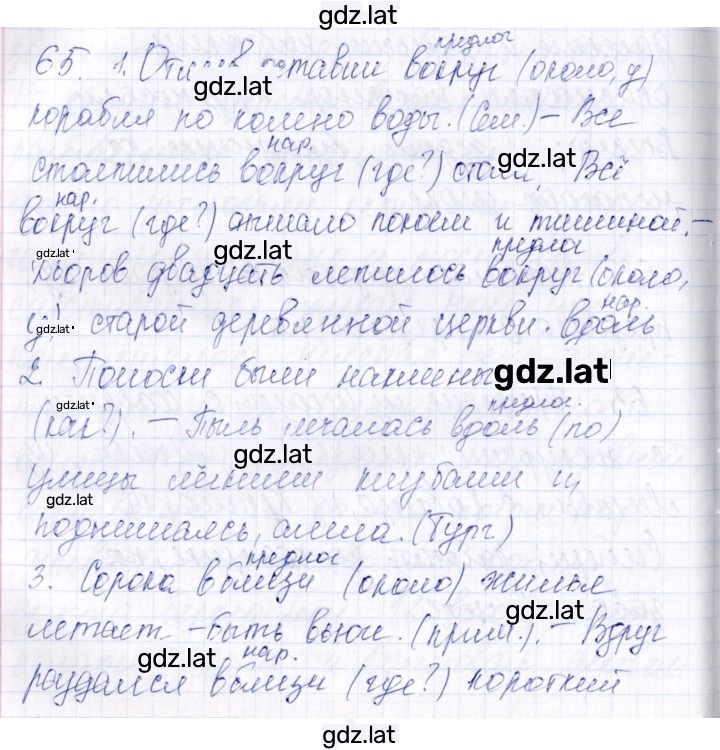 gdz.lat
предлог
65. 1. Отлив оставил вокруг (около, у)
gdz.lat
корабля по колено воды. (Сем.) – Все
нар. gdz.lat
столпились вокруг (где?) Всё
нар.
вокруг (где?) дышало покоем и тишиной. –
gdz.lat gdz.lat предлог
Дворов двадцать лепилось вокруг (около,
gdz.lat нар.
у) старой деревянной церкви. вдоль
2. Полоски были наклеены gdz.lat
gdz.lat предлог.
(как?). – Пыль мчалась вдоль (по)
gdz.lat
улицы лёгкими клубами и,
gdz.lat
поднимаясь, алела. (Тург)
предлог
3. Сорока вблизи (около) жилья
gdz.lat
летает – быть вьюге. (прим.). – Вдруг
gdz.lat нар.
раздался вблизи (где?) короткий
gdz.lat